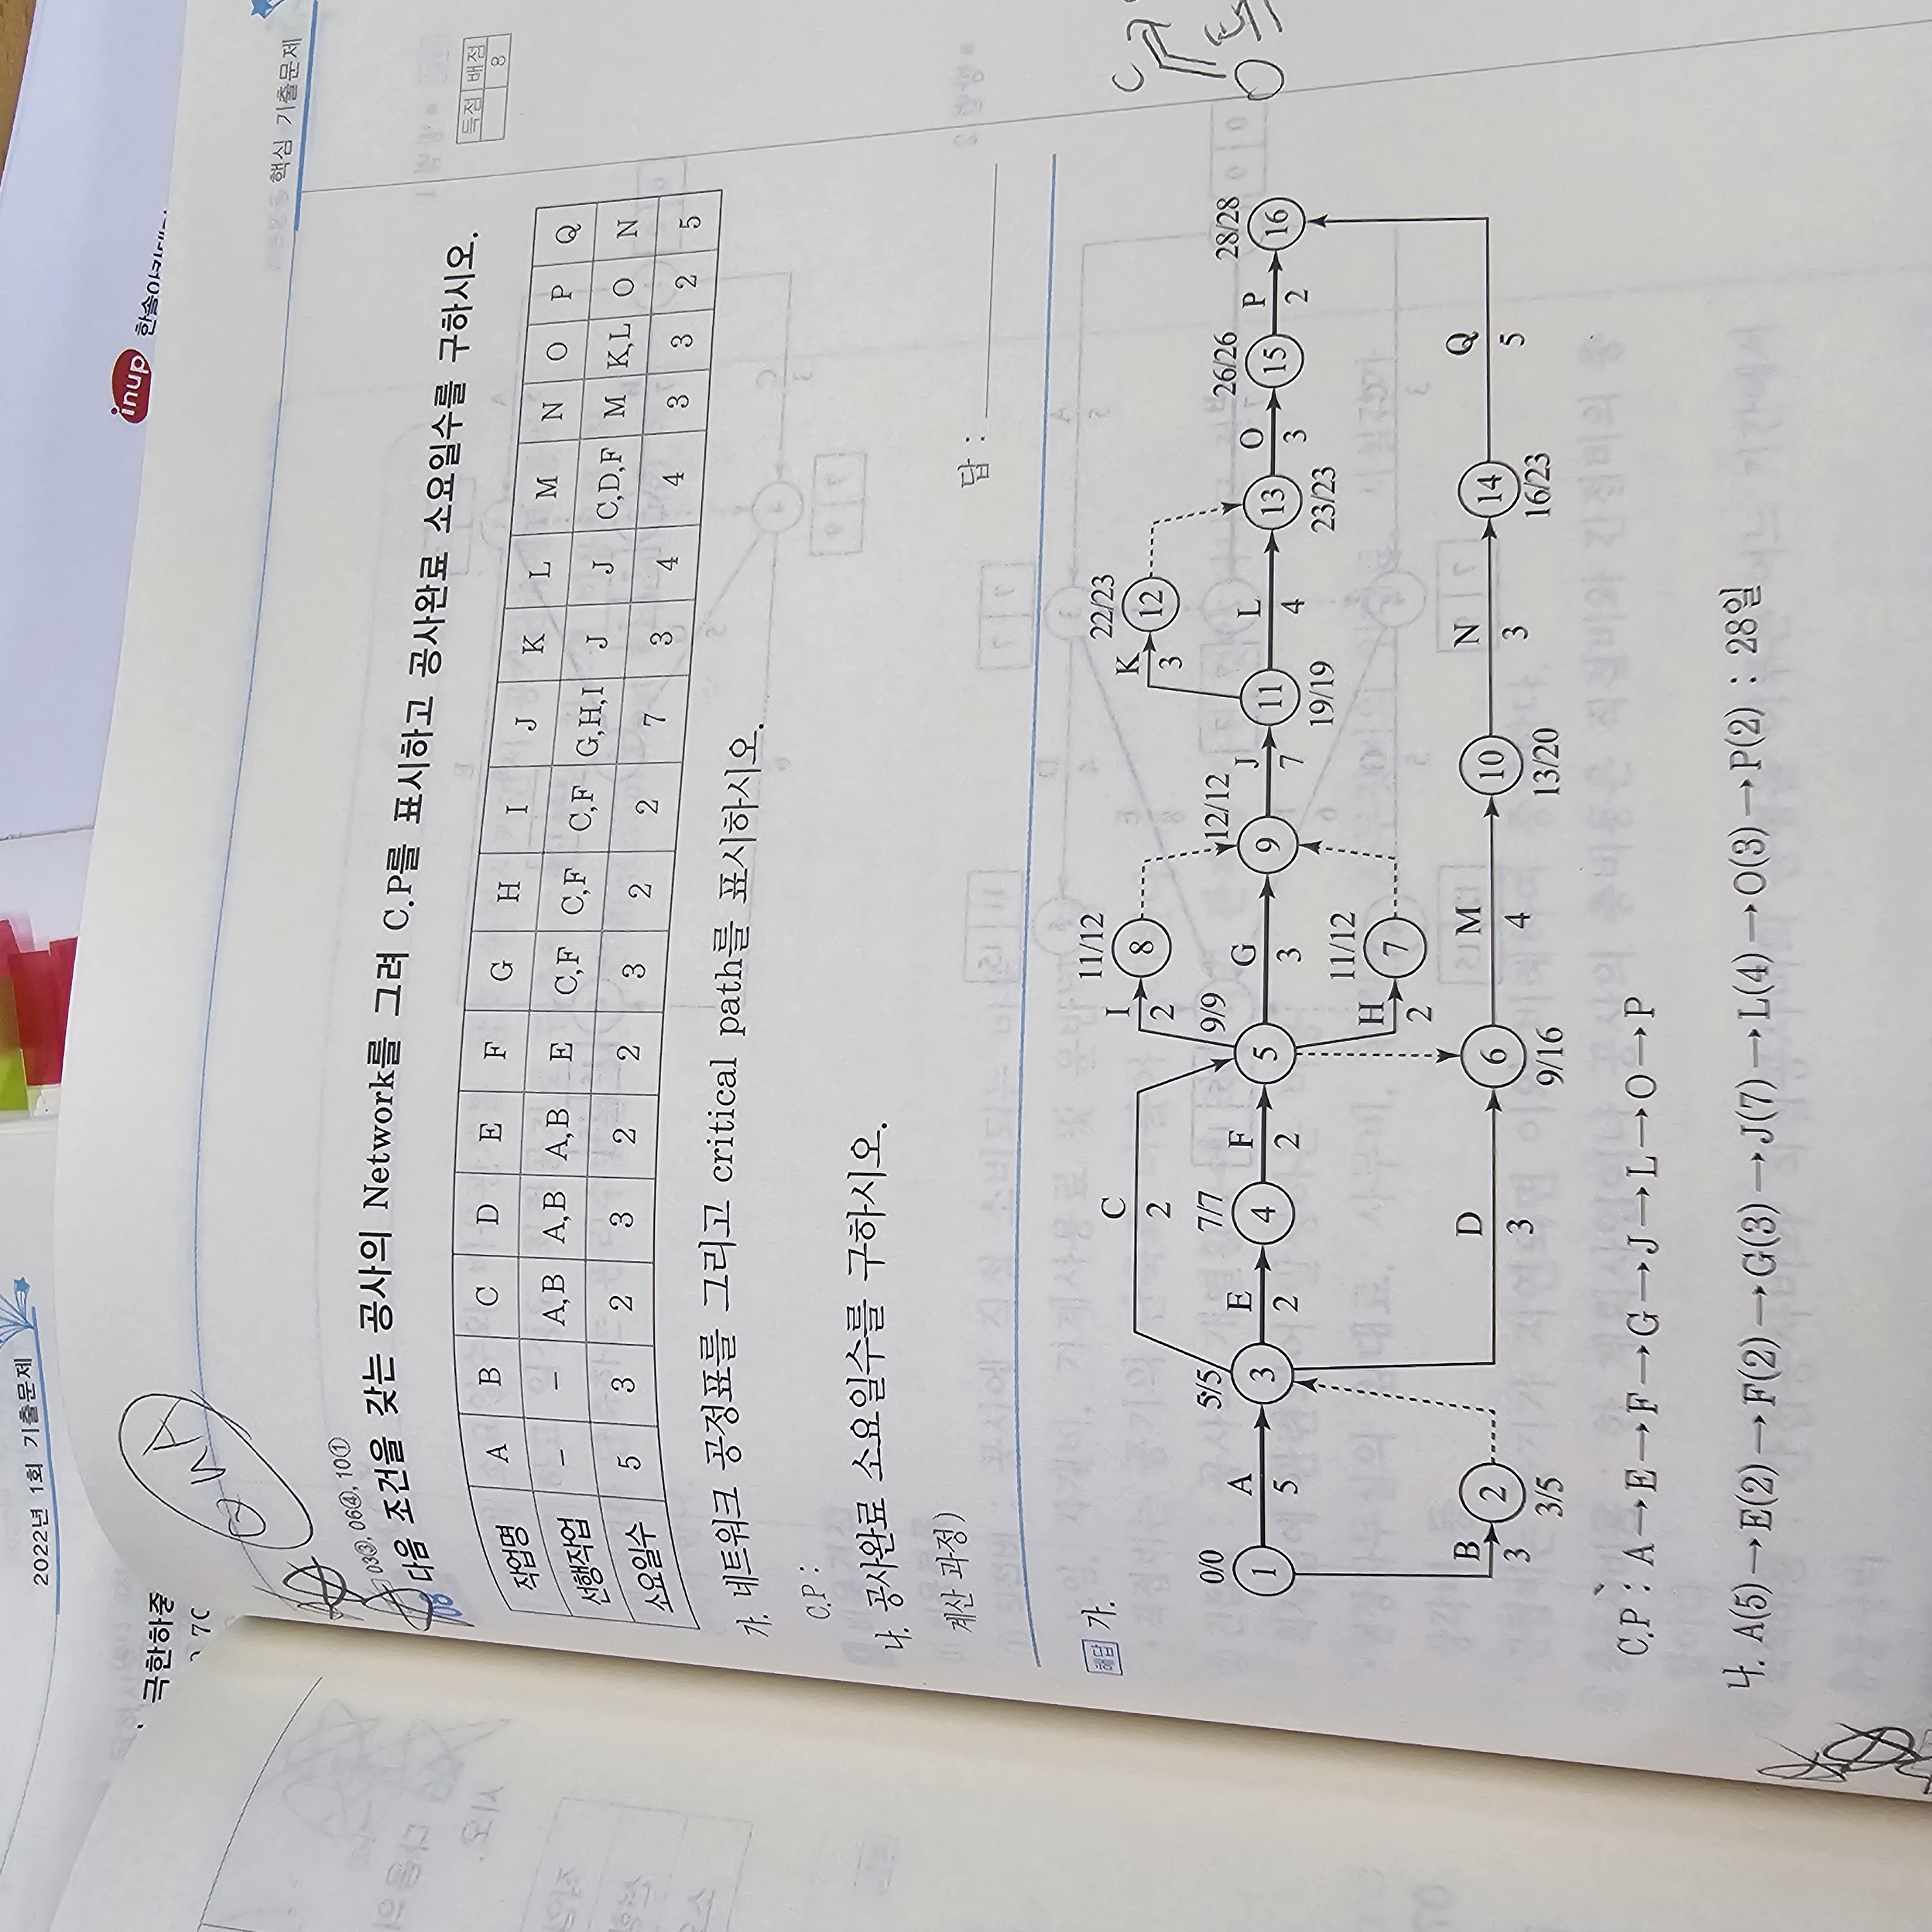 2022년 1회 기출문제
극한하중
핵심 기출문제
inup 한솔아카데미
03③, 06④, 10①
다음 조건을 갖는 공사의 Network를 그려 C.P를 표시하고 공사완료 소요일수를 구하시오.
득점 배점
8
작업명 A B C D E F G H I J K L M N O P Q
선행작업 – – A,B A,B A,B E C,F C,F C,F G,H,I J J C,D,F M K,L O N
소요일수 5 3 2 3 2 2 3 2 2 7 3 4 4 3 3 2 5
가. 네트워크 공정표를 그리고 critical path를 표시하시오.
C.P :
나. 공사완료 소요일수를 구하시오.
계산 과정)
답 :
해답 가.
C
2
I
2
11/12
8
K
3
22/23
12
0/0
1
A
5
5/5
3
E
2
7/7
4
F
2
9/9
5
G
3
12/12
9
J
7
11
19/19
L
4
13
23/23
O
3
26/26
15
P
2
28/28
16
H
2
11/12
7
B
3
2
3/5
D
3
6
9/16
M
4
10
13/20
N
3
14
16/23
Q
5
C.P : A→E→F→G→J→L→O→P
나. A(5)→E(2)→F(2)→G(3)→J(7)→L(4)→O(3)→P(2) : 28일